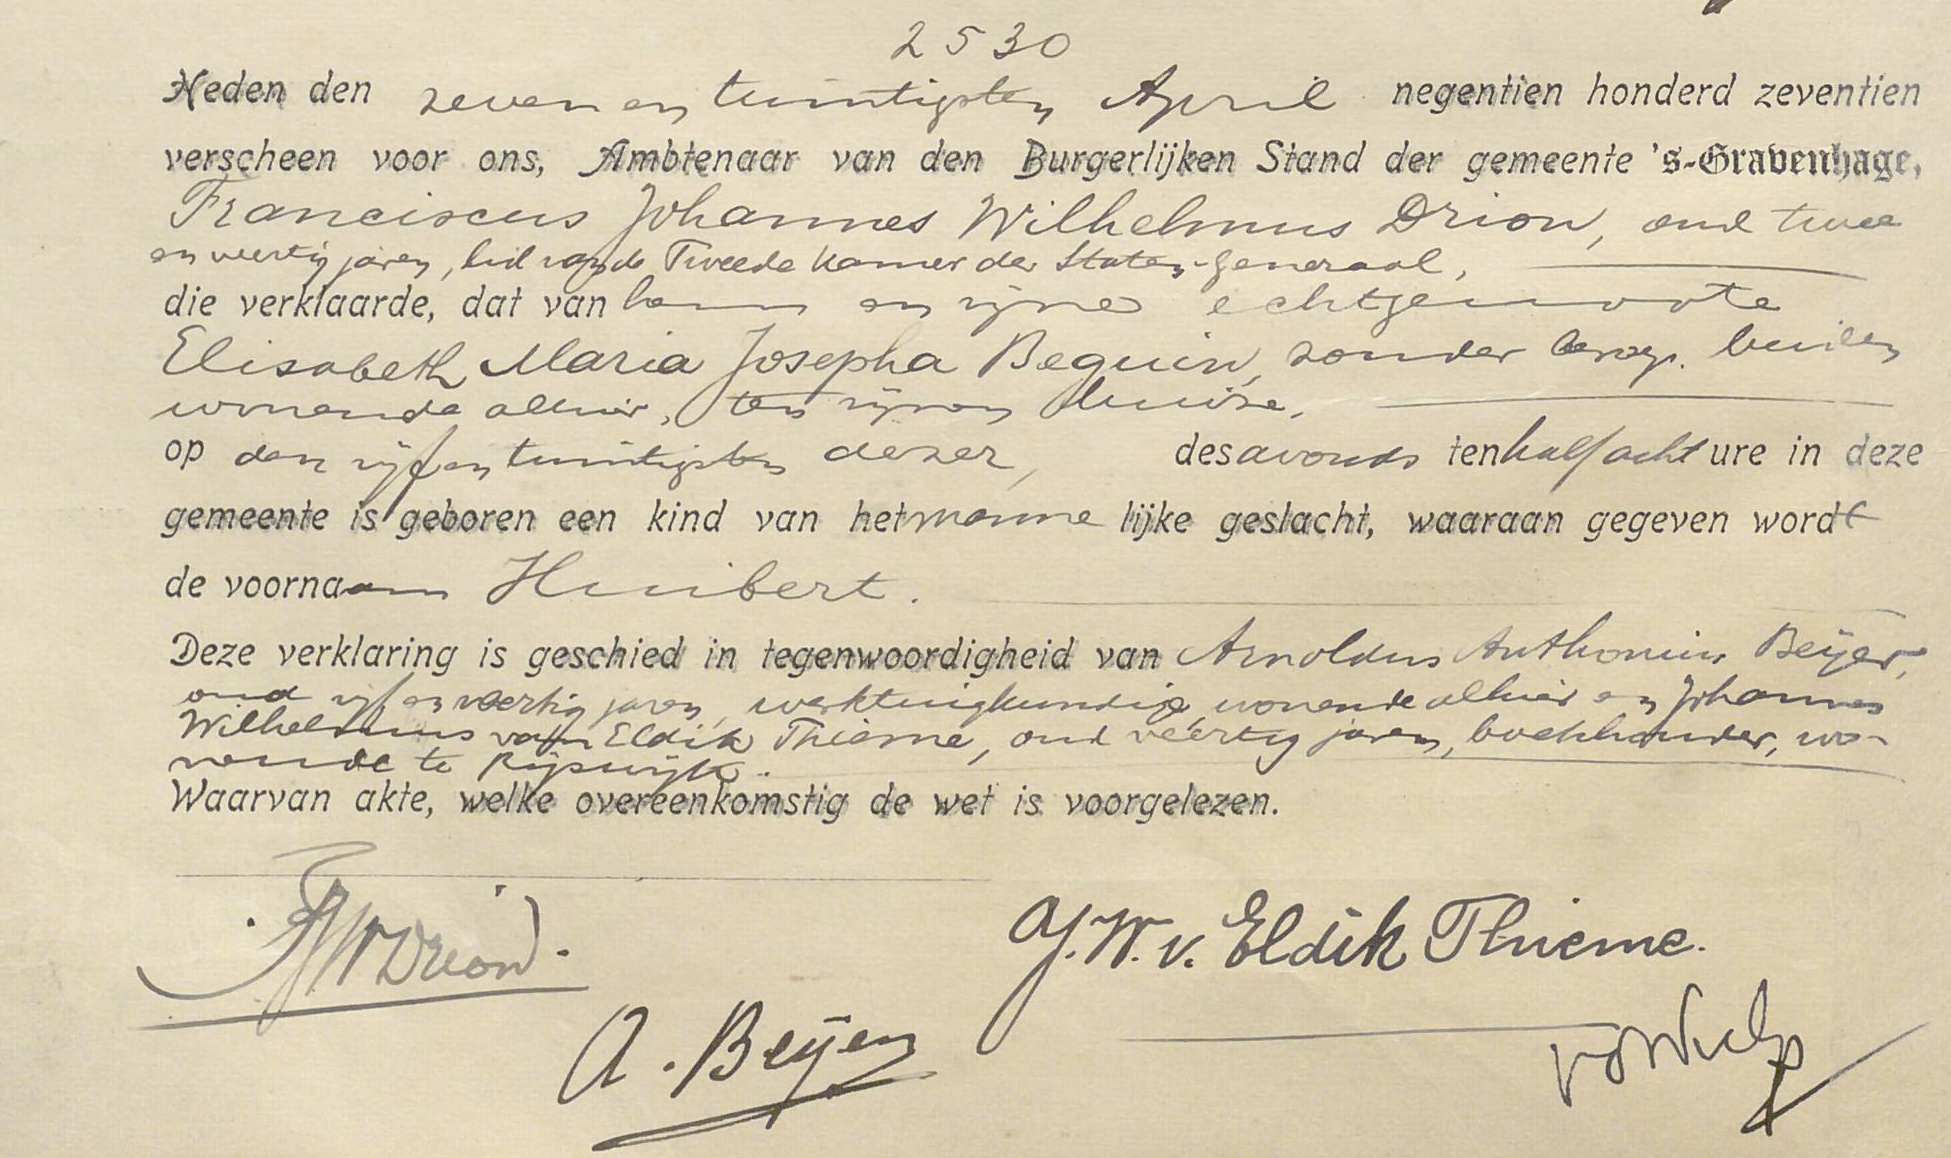 2530
Heden den zeven en twintigsten April negentien honderd zeventien
verscheen voor ons, Ambtenaar van den Burgerlijken Stand der gemeente 's-Gravenhage,
Franciscus Johannes Wilhelmus Drion, oud twee
en veertig jaren, lid van de Tweede Kamer der Staten-Generaal,
die verklaarde, dat van hem en zijne echtgenoote
Elisabeth Maria Josepha Beguin, zonder beroep, beiden
wonende alhier, ten zijnen huize,
op den vijf en twintigsten dezer, des avonds ten half acht ure in deze
gemeente is geboren een kind van het mannelijke geslacht, waaraan gegeven wordt
de voornaam Huibert.
Deze verklaring is geschied in tegenwoordigheid van Arnoldus Anthonius Beijer,
oud vijf en veertig jaren, werktuigkundige, wonende alhier en Johannes
Wilhelmus van Eldik Thieme, oud veertig jaren, boekhouder, wo-
nende te Rijswijk.
Waarvan akte, welke overeenkomstig de wet is voorgelezen.
FJW Drion.
J.W. v. Eldik Thieme.
A. Beijer